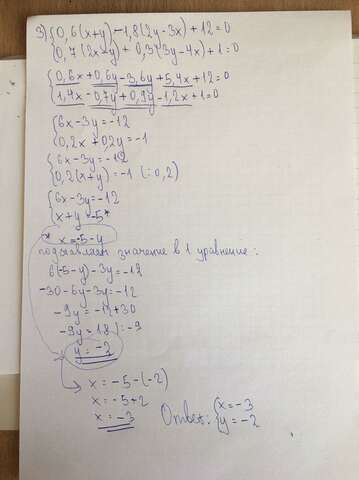 3) {0,6(x+y) - 1,8(2y-3x) + 12=0
{0,7(2x-y) + 0,3(3y-4x) + 1=0
{0,6x+0,6y-3,6y+5,4x+12=0
{1,4x-0,7y+0,9y-1,2x+1=0
{6x-3y=-12
{0,2x+0,2y=-1
{6x-3y=-12
{0,2(x+y)=-1 (:0,2)
{6x-3y=-12
{x+y=-5*
* x=-5-y
подставляем значение в 1 уравнение:
6(-5-y)-3y=-12
-30-6y-3y=-12
-9y=-12+30
-9y=18 |:-9
y=-2
x=-5-(-2)
x=-5+2
x=-3
Ответ: {x=-3
{y=-2